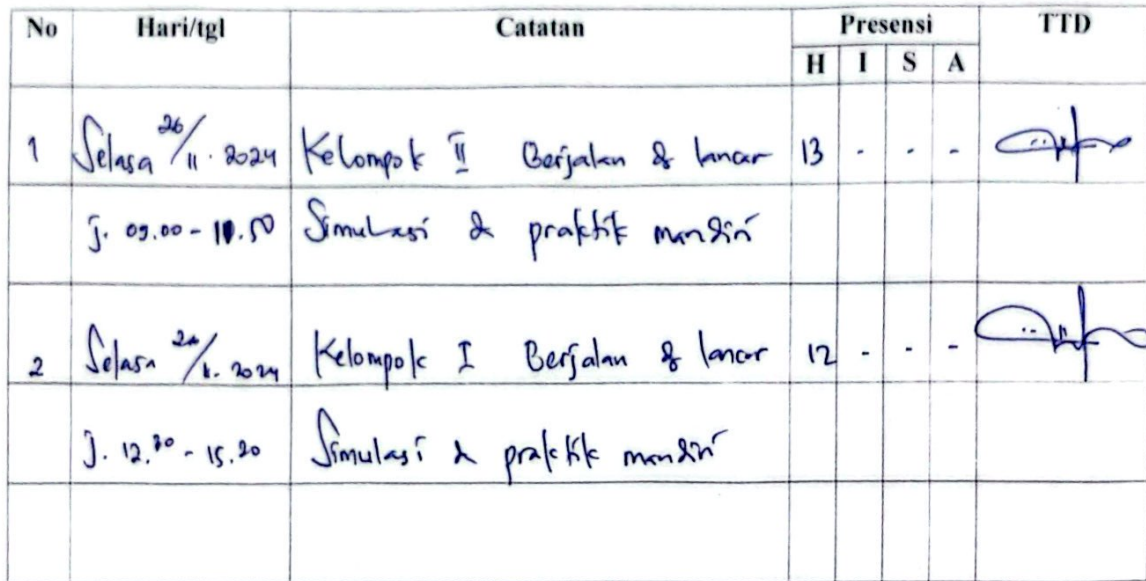 No Hari/tgl Catatan Presensi TTD
H I S A
1 Selasa 26/11. 2024 Kelompok II Berjalan & lancar 13 - - -
j. 09.00 - .50 Simulasi & praktik mandiri
2 Selasa 26/11. 2024 Kelompok I Berjalan & lancar 12 - - -
J. 12.30 - 15.20 Simulasi & praktik mandiri